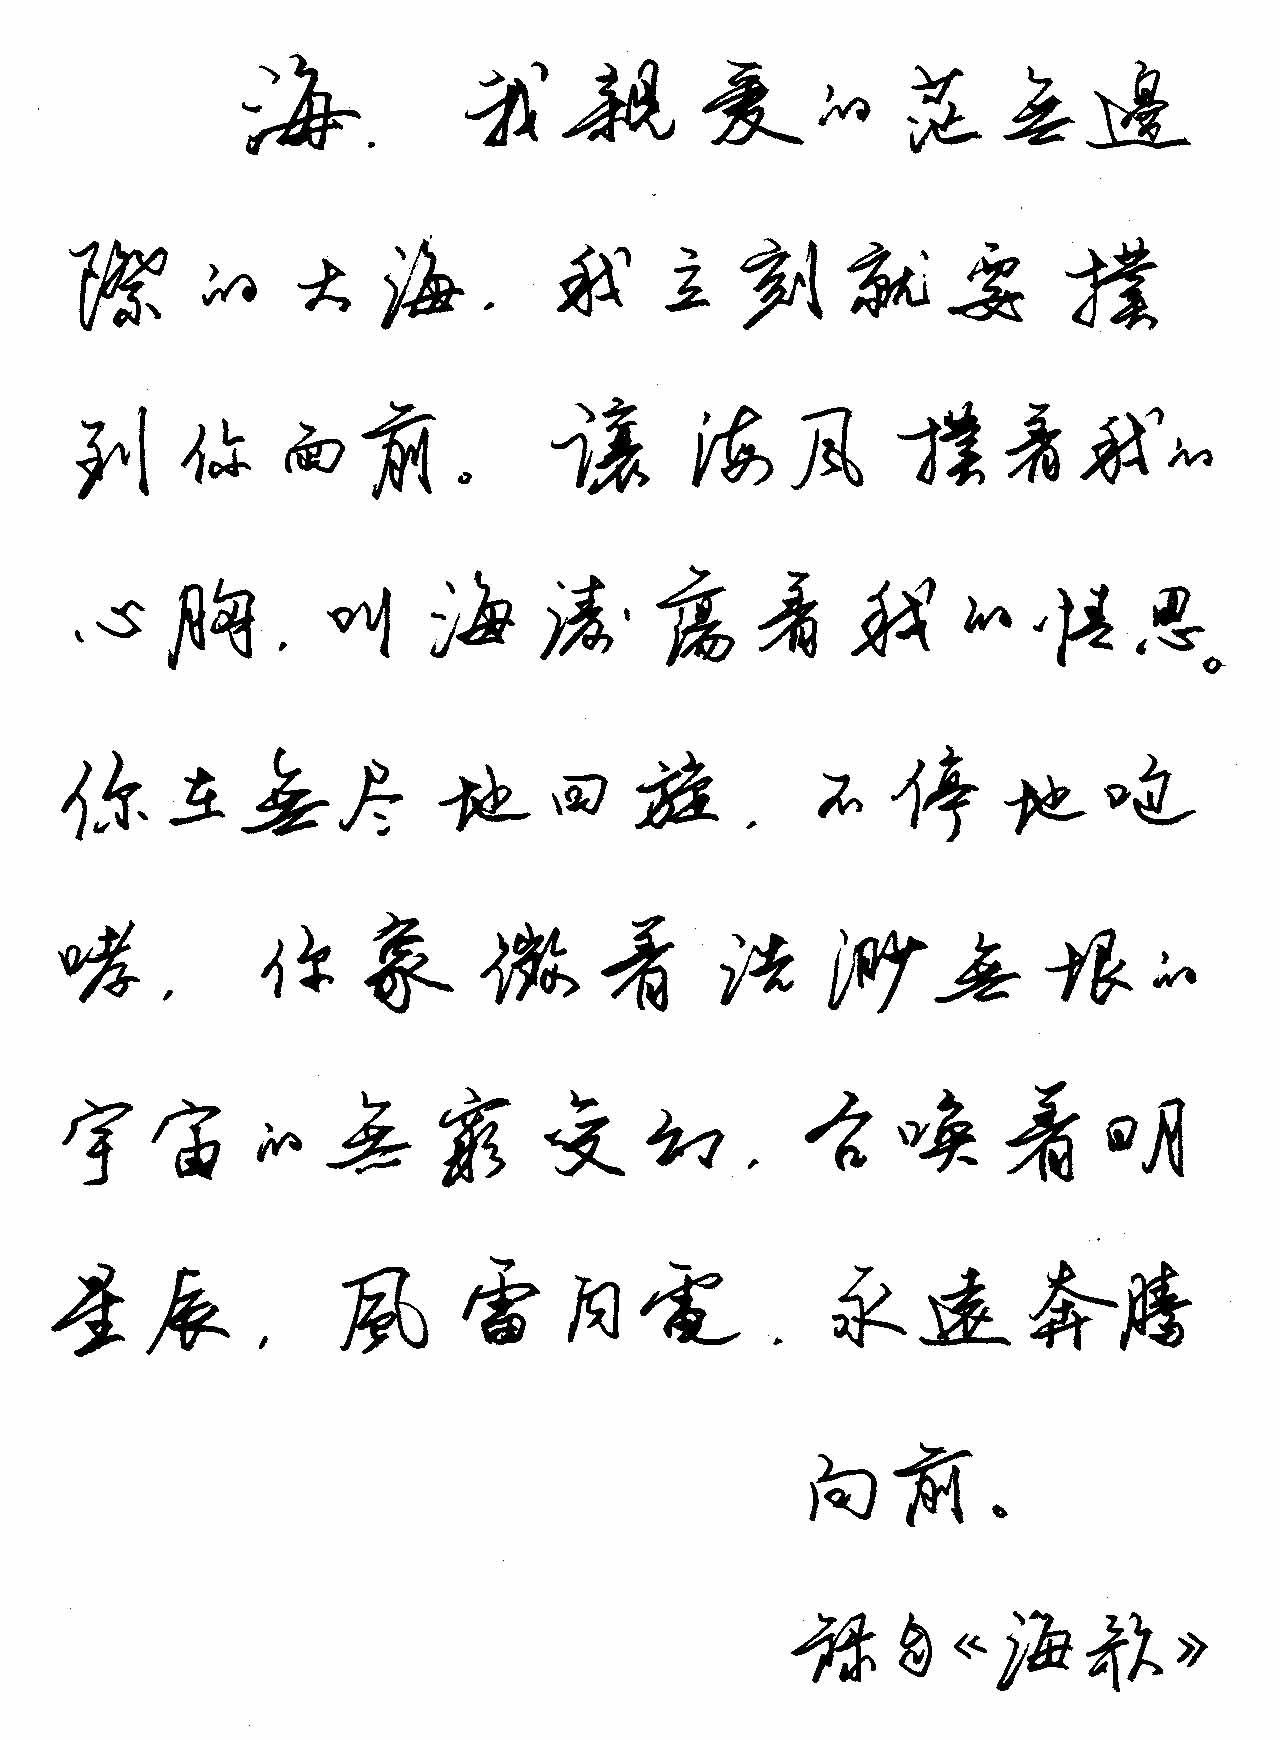 海，我親爱的茫無邊
際的大海，我立刻就要撲
到你面前。讓海风撲着我的
心胸，叫海濤蕩着我的情思。
你在無尽地回旋，不停地咆
哮，你象徵着浩渺無垠的
宇宙的無窮变幻，召唤着明
星辰，風雷閃電，永遠奔騰
向前。
録自《海歌》